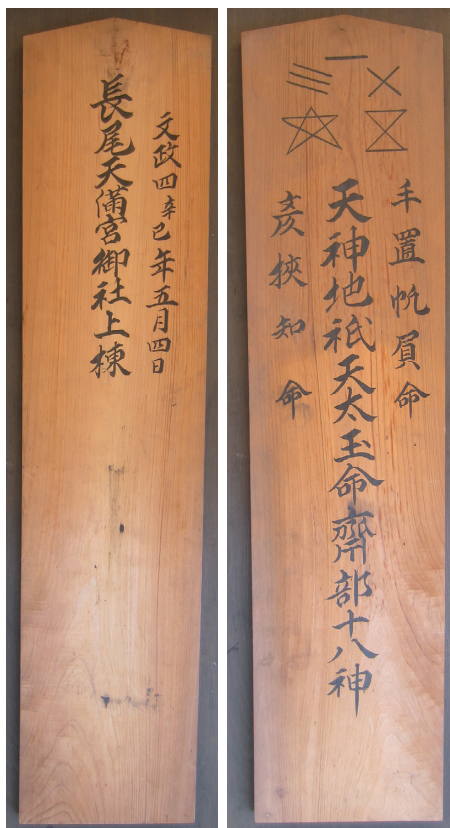 文政四辛巳年五月四日
長尾天満宮御社上棟
手置帆負命
天神地祇天太玉命齋部十八神
彦狹知命